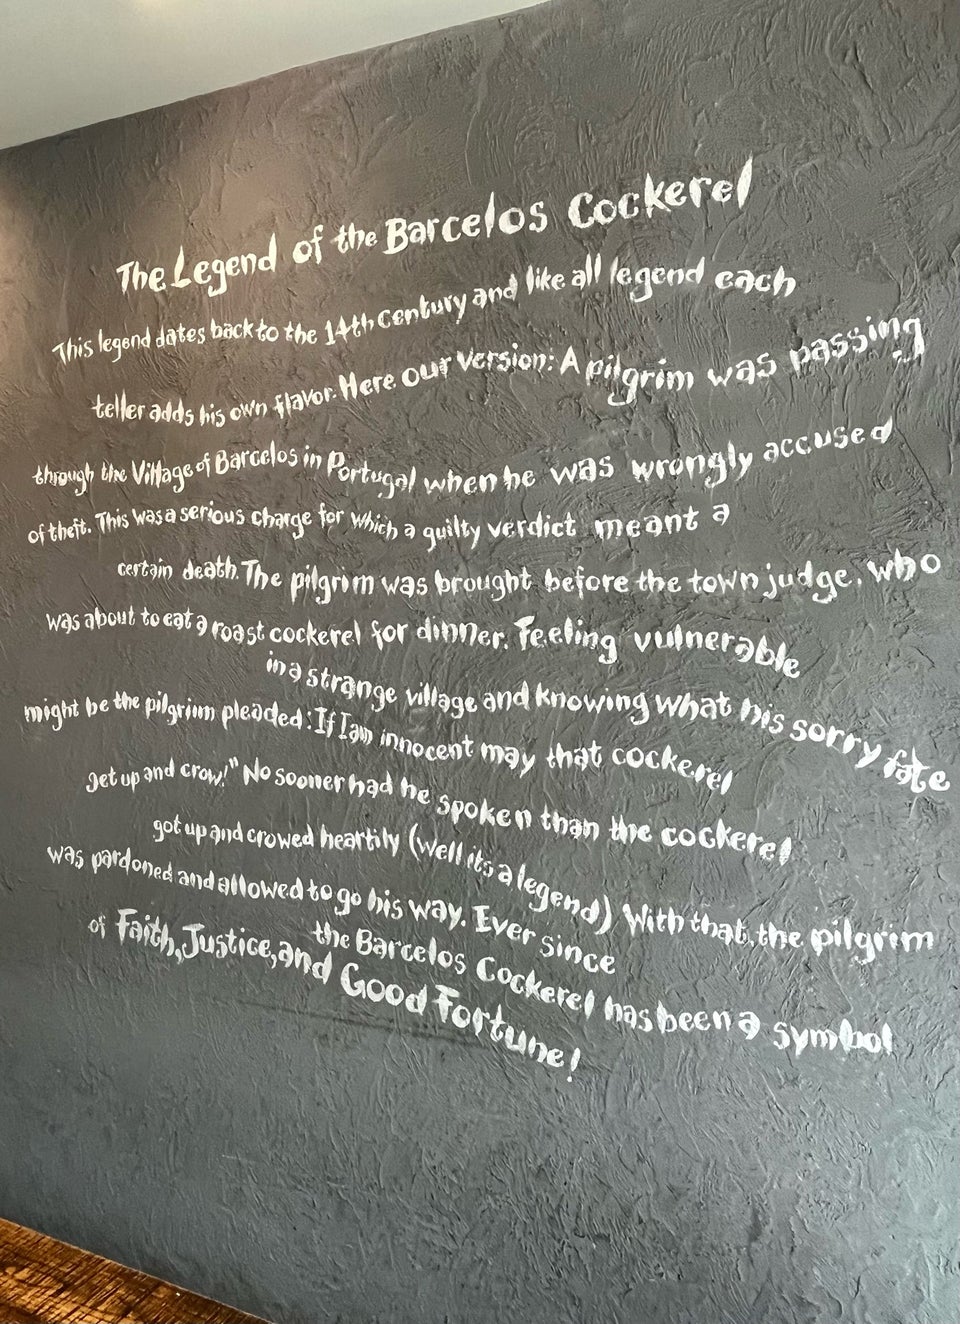 The Legend of the Barcelos Cockerel
This legend dates back to the 14th Century and like all legend each
teller adds his own flavor. Here our version: A pilgrim was passing
through the Village of Barcelos in Portugal when he was wrongly accused
of theft. This was a serious charge for which a guilty verdict meant a
certain death. The pilgrim was brought before the town judge, who
was about to eat a roast cockerel for dinner. Feeling vulnerable
in a strange village and knowing what his sorry fate
might be the pilgrim pleaded: If I am innocent may that cockerel
get up and crow!" No sooner had he spoken than the cockerel
got up and crowed heartily (Well its a legend) With that, the pilgrim
was pardoned and allowed to go his way. Ever since
the Barcelos Cockerel has been a symbol
of Faith, Justice, and Good Fortune!